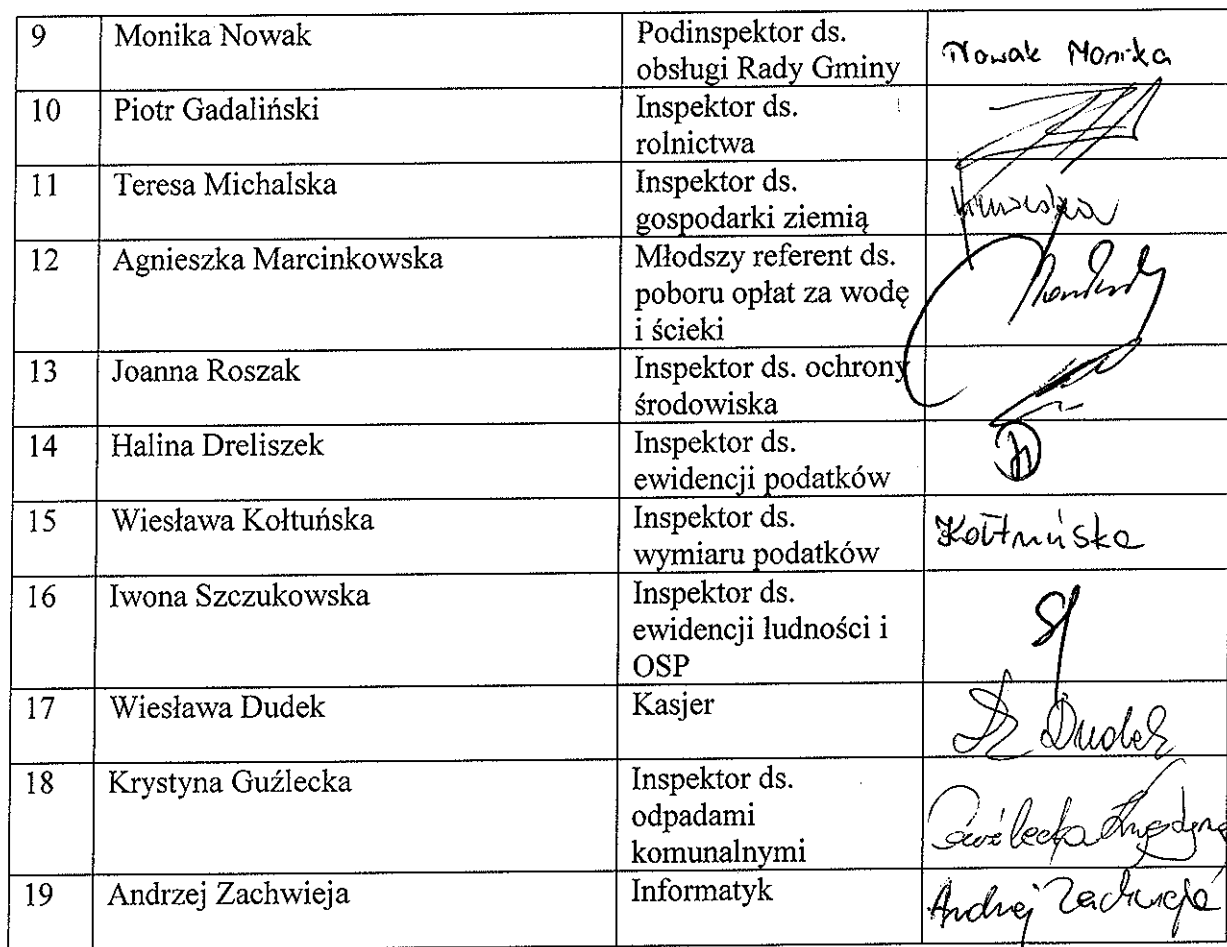 9 Monika Nowak Podinspektor ds. Nowak Monika
obsługi Rady Gminy
10 Piotr Gadaliński Inspektor ds.
rolnictwa
11 Teresa Michalska Inspektor ds.
gospodarki ziemią
12 Agnieszka Marcinkowska Młodszy referent ds.
poboru opłat za wodę
i ścieki
13 Joanna Roszak Inspektor ds. ochrony
środowiska
14 Halina Dreliszek Inspektor ds.
ewidencji podatków
15 Wiesława Kołtuńska Inspektor ds. Kołtuńska
wymiaru podatków
16 Iwona Szczukowska Inspektor ds.
ewidencji ludności i
OSP
17 Wiesława Dudek Kasjer Dudek
18 Krystyna Guźlecka Inspektor ds.
odpadami Guźlecka Krystyna
komunalnymi
19 Andrzej Zachwieja Informatyk Andrzej Zachwieja